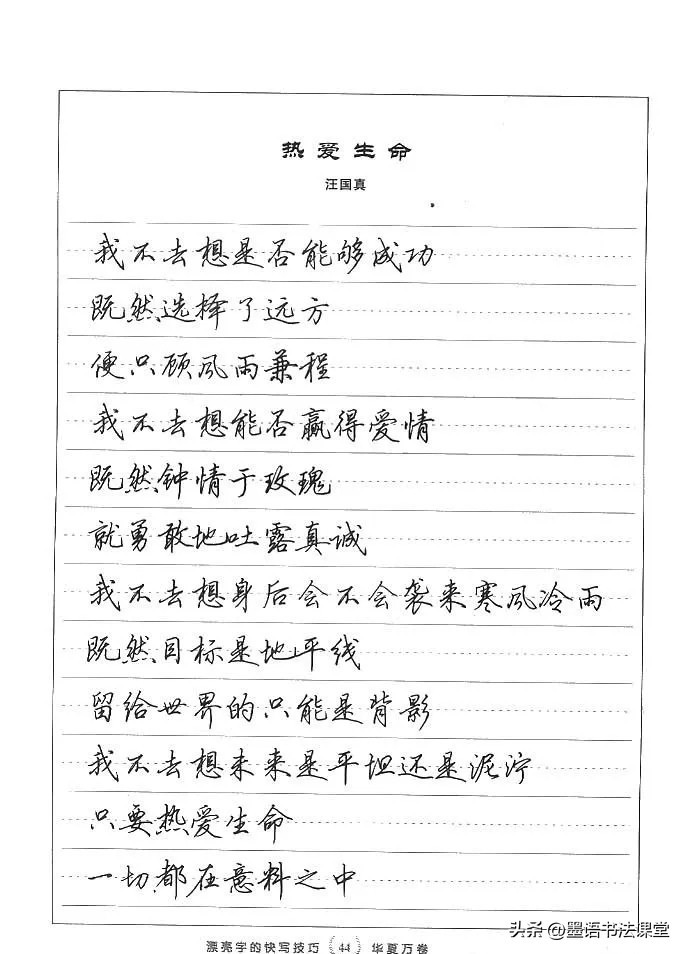 热爱生命
汪国真
我不去想是否能够成功
既然选择了远方
便只顾风雨兼程
我不去想能否赢得爱情
既然钟情于玫瑰
就勇敢地吐露真诚
我不去想身后会不会袭来寒风冷雨
既然目标是地平线
留给世界的只能是背影
我不去想未来是平坦还是泥泞
只要热爱生命
一切都在意料之中
漂亮字的快写技巧 44 华夏万卷
头条@墨语书法课堂